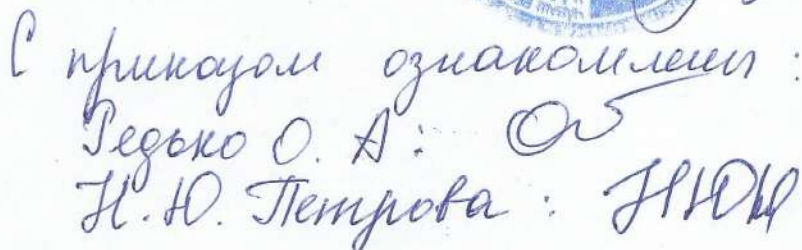 С приказом ознакомлены:
Редько О. А:
Н. Ю. Петрова: